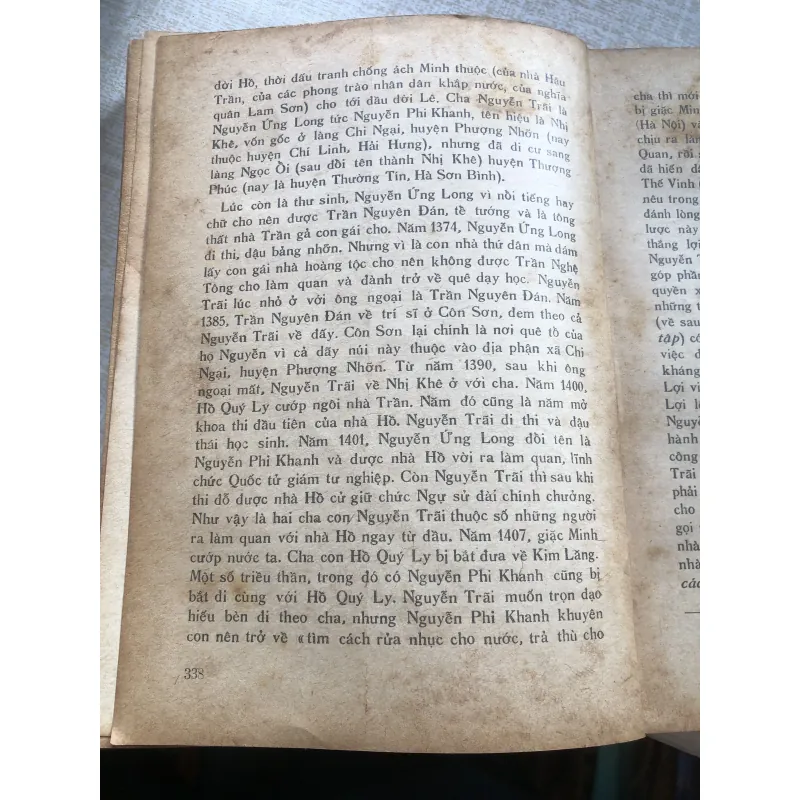 đời Hồ, thời đấu tranh chống ách Minh thuộc (của nhà Hậu
Trần, của các phong trào nhân dân khắp nước, của nghĩa
quân Lam Sơn) cho tới đầu đời Lê. Cha Nguyễn Trãi là
Nguyễn Ứng Long tức Nguyễn Phi Khanh, tên hiệu là Nhị
Khê, vốn gốc ở làng Chi Ngại, huyện Phượng Nhỡn (nay
thuộc huyện Chí Linh, Hải Hưng), nhưng đã di cư sang
làng Ngọc Ổi (sau đổi tên thành Nhị Khê) huyện Thượng
Phúc (nay là huyện Thường Tín, Hà Sơn Bình).
Lúc còn là thư sinh, Nguyễn Ứng Long vì nổi tiếng hay
chữ cho nên được Trần Nguyên Đán, tể tướng và là tông
thất nhà Trần gả con gái cho. Năm 1374, Nguyễn Ứng Long
đi thi, đậu bảng nhỡn. Nhưng vì là con nhà thứ dân mà dám
lấy con gái nhà hoàng tộc cho nên không được Trần Nghệ
Tông cho làm quan và đành trở về quê dạy học. Nguyễn
Trãi lúc nhỏ ở với ông ngoại là Trần Nguyên Đán. Năm
1385, Trần Nguyên Đán về trí sĩ ở Côn Sơn, đem theo cả
Nguyễn Trãi về đấy. Côn Sơn lại chính là nơi quê tổ của
họ Nguyễn vì cả dãy núi này thuộc vào địa phận xã Chi
Ngại, huyện Phượng Nhỡn. Từ năm 1390, sau khi ông
ngoại mất, Nguyễn Trãi về Nhị Khê ở với cha. Năm 1400,
Hồ Quý Ly cướp ngôi nhà Trần. Năm đó cũng là năm mở
khoa thi đầu tiên của nhà Hồ. Nguyễn Trãi đi thi và đậu
thái học sinh. Năm 1401, Nguyễn Ứng Long đổi tên là
Nguyễn Phi Khanh và được nhà Hồ vời ra làm quan, lĩnh
chức Quốc tử giám tư nghiệp. Còn Nguyễn Trãi thì sau khi
thi đỗ được nhà Hồ cử giữ chức Ngự sử đài chính chưởng.
Như vậy là hai cha con Nguyễn Trãi thuộc số những người
ra làm quan với nhà Hồ ngay từ đầu. Năm 1407, giặc Minh
cướp nước ta. Cha con Hồ Quý Ly bị bắt đưa về Kim Lăng.
Một số triều thần, trong đó có Nguyễn Phi Khanh cũng bị
bắt đi cùng với Hồ Quý Ly. Nguyễn Trãi muốn trọn đạo
hiếu bèn đi theo cha, nhưng Nguyễn Phi Khanh khuyên
con nên trở về « tìm cách rửa nhục cho nước, trả thù cho
338
cha thì mới
bị giặc Min
(Hà Nội) và
chịu ra làm
Quan, rồi
đã hiến
Thế Vinh
nêu trong
đánh lòng
lược này
thắng lợi
Nguyễn T
góp phần
quyền x
những t
(về sau
tập) c
việc đ
kháng
Lợi vi
Lợi l
Nguyễ
hành
công
Trãi
phải
cho
gọi
nhà
nhà
các